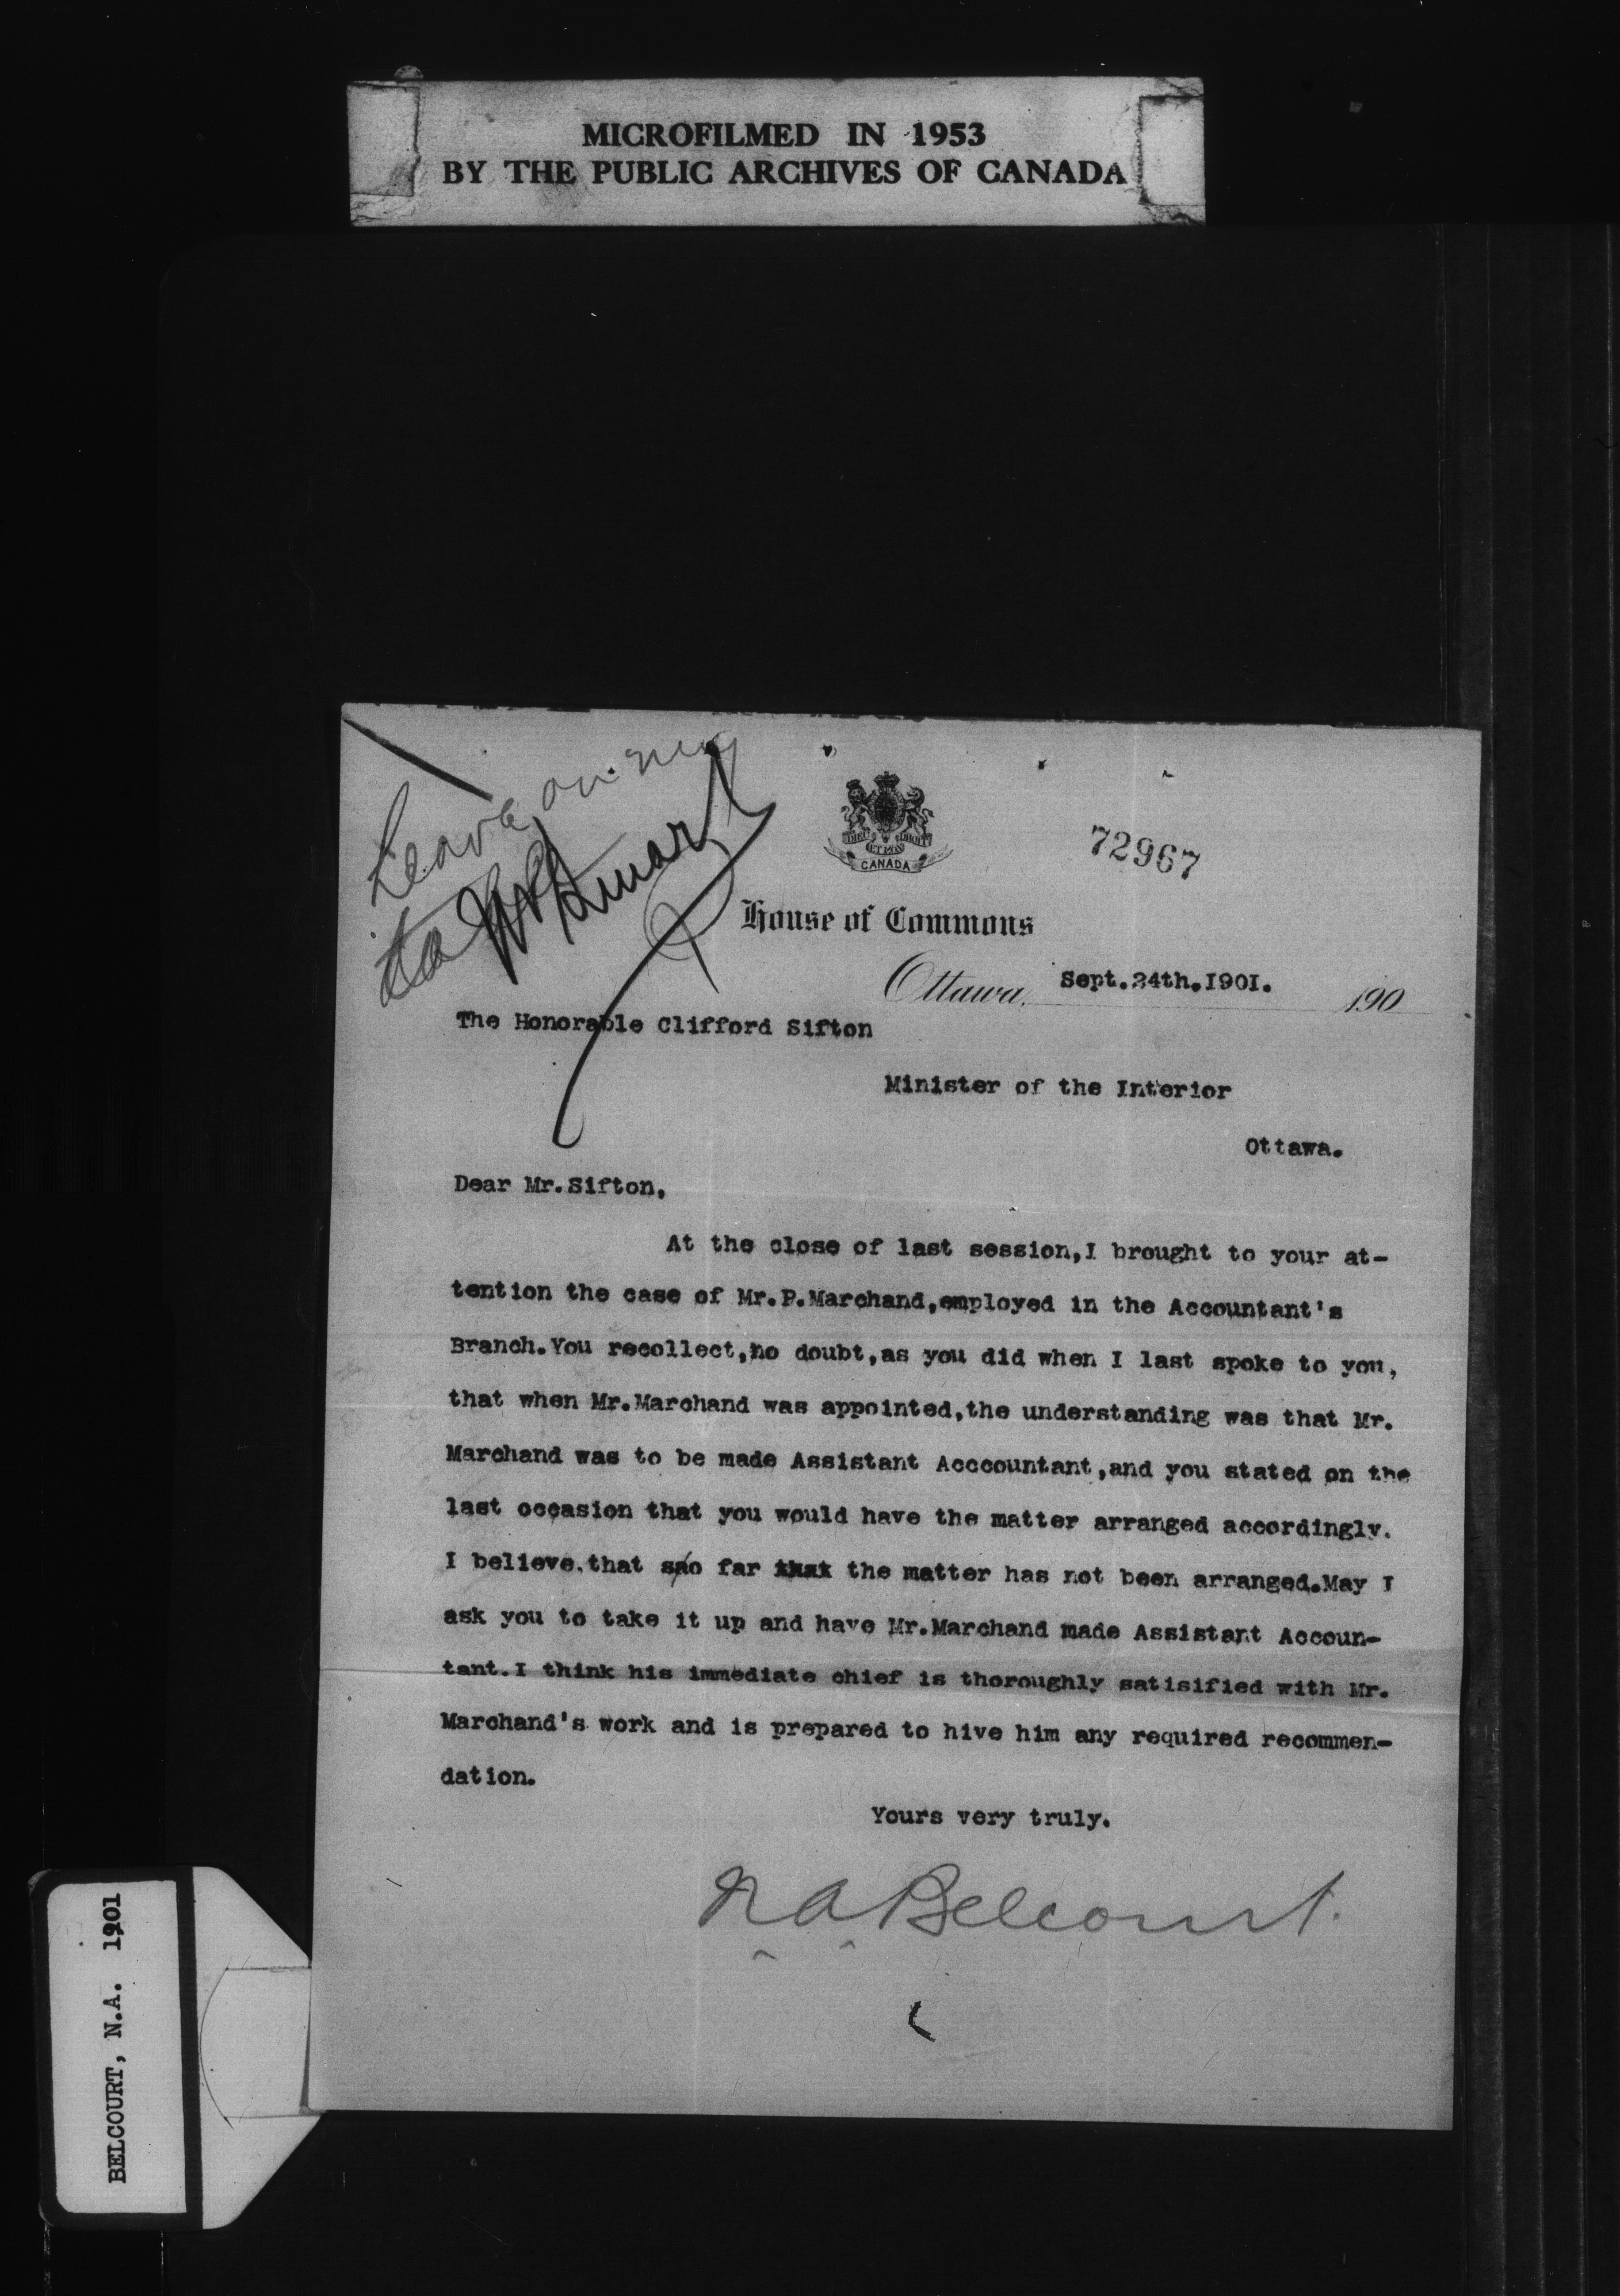 MICROFILMED IN 1953
BY THE PUBLIC ARCHIVES OF CANADA
Leave on my
to Mr Smart
DIEU ET MON DROIT
CANADA
72967
House of Commons
Ottawa, Sept.24th.1901. 190
The Honorable Clifford Sifton
Minister of the Interior
Ottawa.
Dear Mr.Sifton,
At the close of last session,I brought to your at-
tention the case of Mr.P.Marchand,employed in the Accountant's
Branch.You recollect,no doubt,as you did when I last spoke to you,
that when Mr.Marchand was appointed,the understanding was that Mr.
Marchand was to be made Assistant Acccountant,and you stated on the
last occasion that you would have the matter arranged accordingly.
I believe.that so far that the matter has not been arranged.May I
ask you to take it up and have Mr.Marchand made Assistant Accoun-
tant.I think his immediate chief is thoroughly satisified with Mr.
Marchand's work and is prepared to hive him any required recommen-
dation.
Yours very truly.
N A Belcourt.
BELCOURT, N.A. 1901